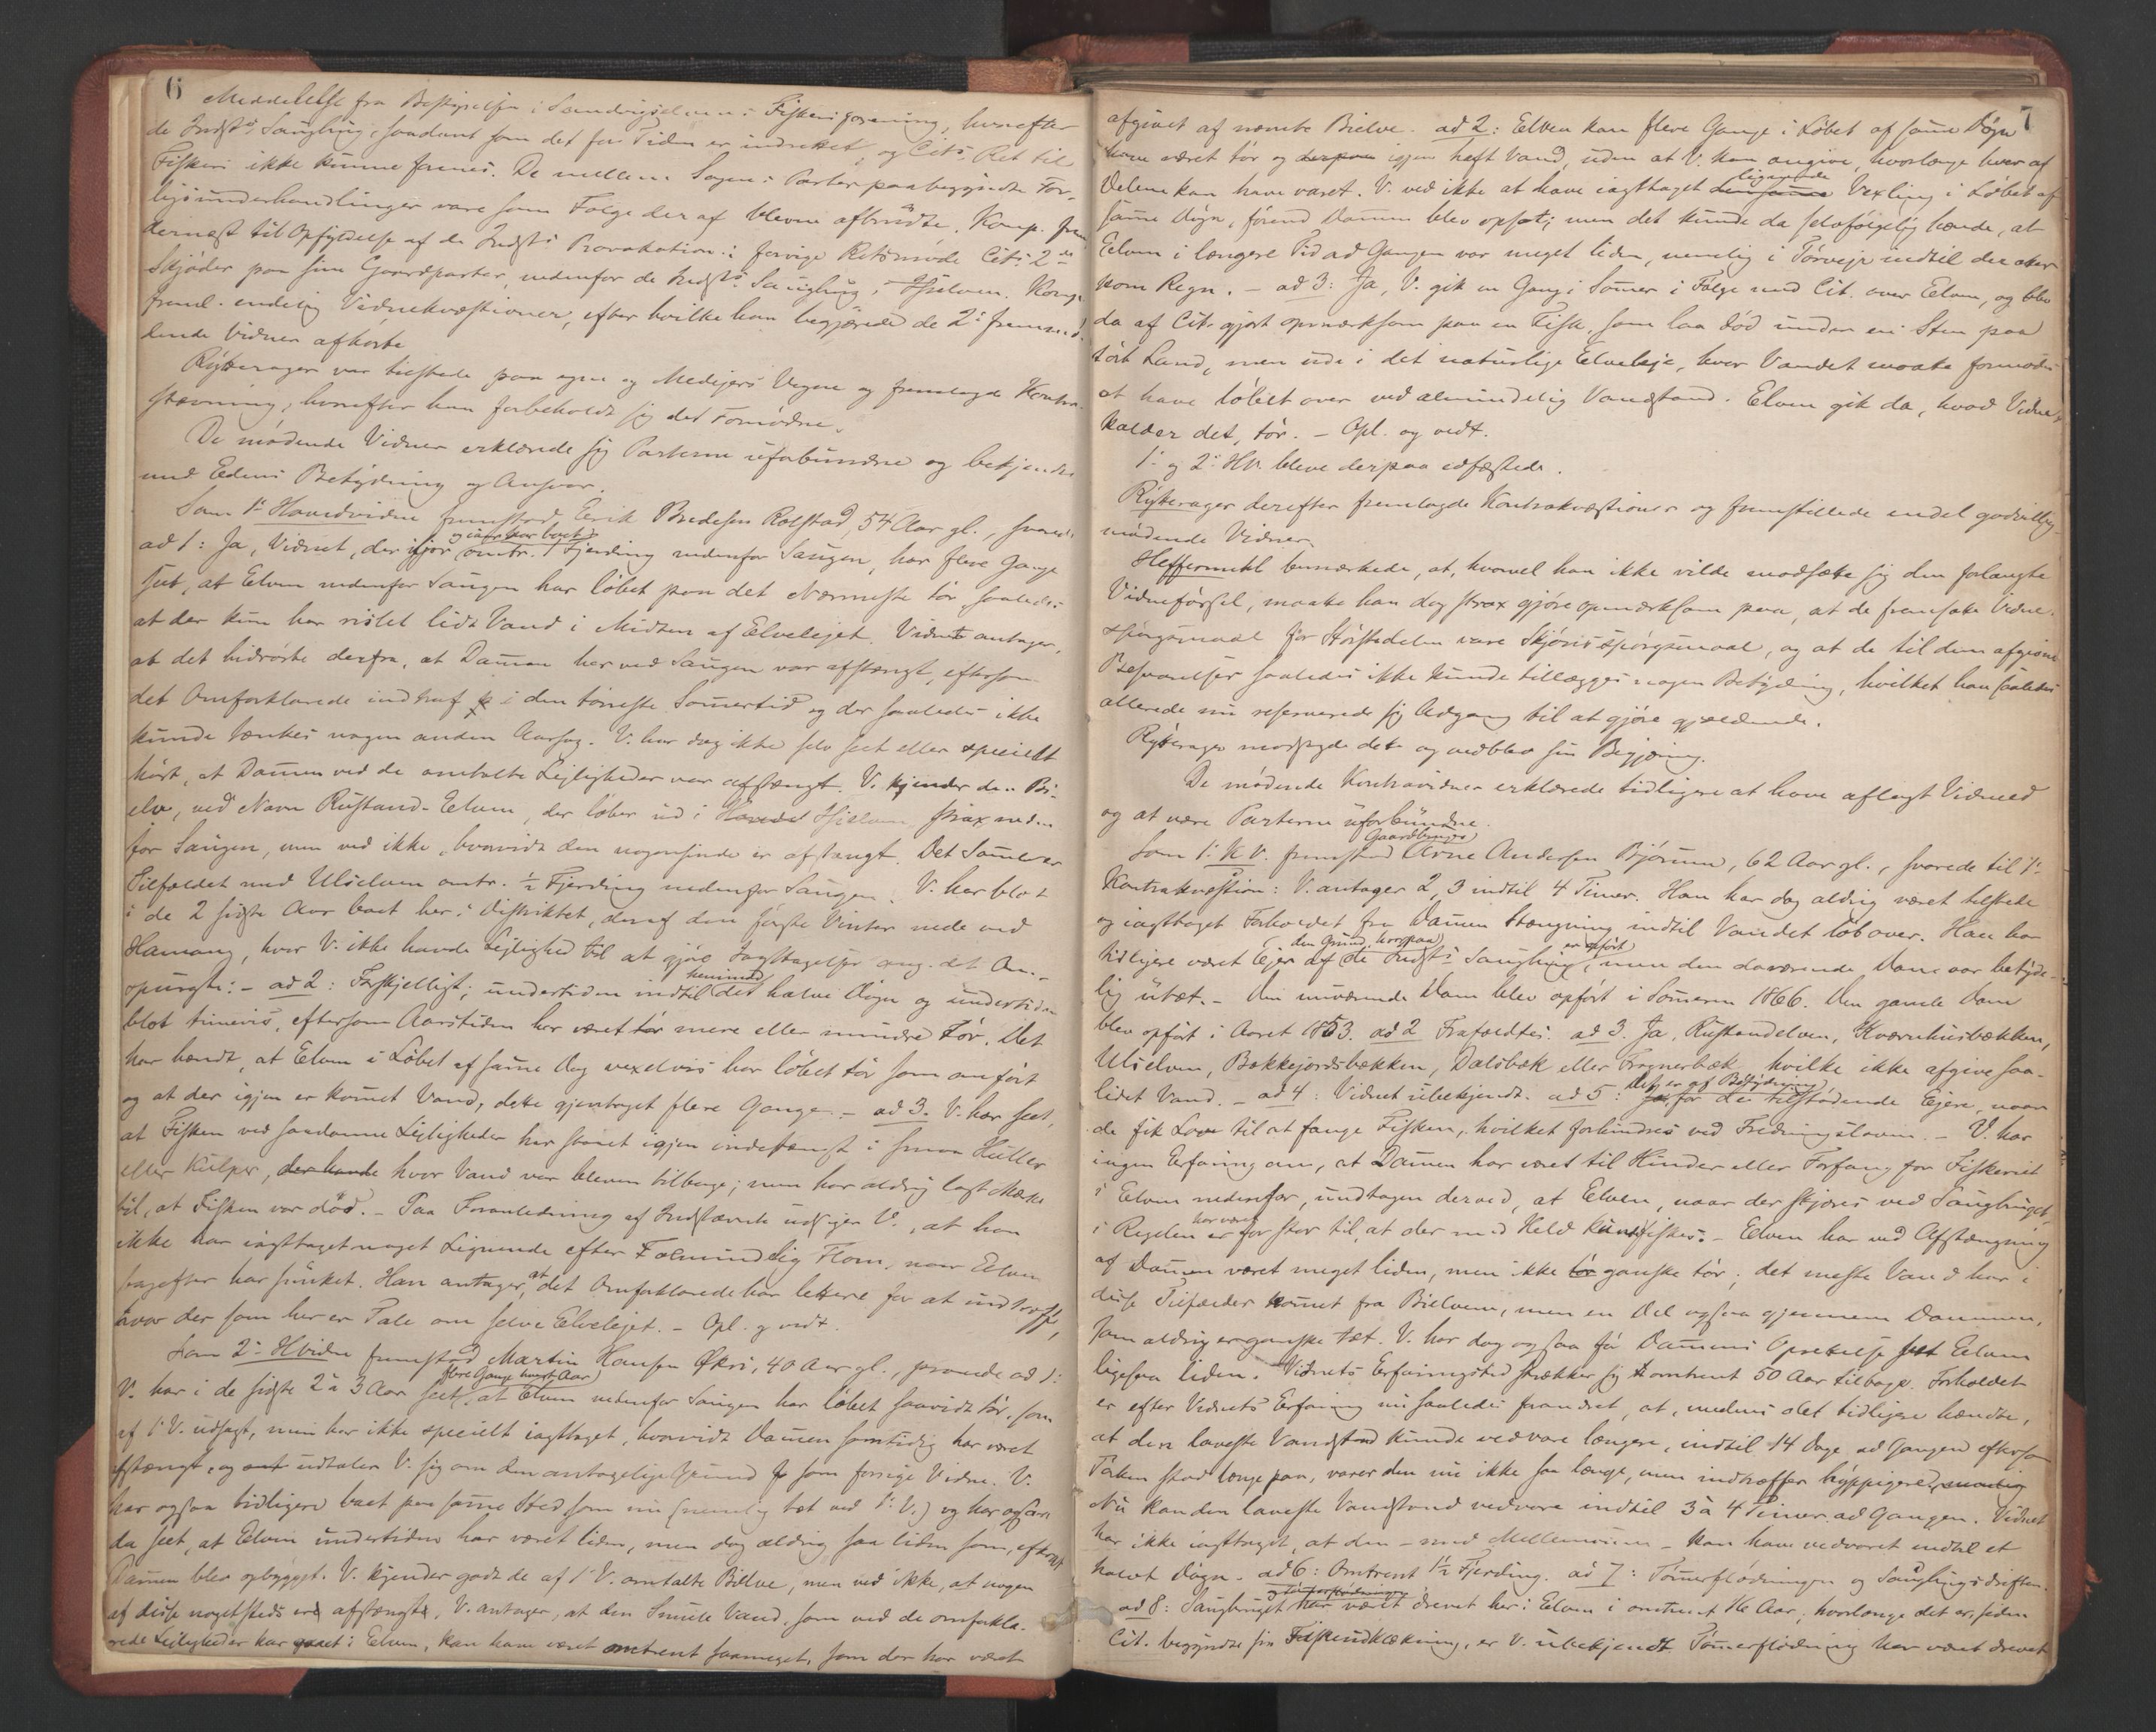 6
Meddelelse fra Bestyrelsen i Sandvigselvens Fiskeriforening, hvorefter
de Indst.s Saugbrug, saadant som det for Tiden er indrettet, og Cits. Ret til
Fiskeri ikke kunne forenes. De mellem Sagens Parter paabegyndte For-
ligsunderhandlinger vare som Følge deraf blevne afbrudte. Komp. frem
dernæst til Opfyldelse af de Indst.s Provokation i forrige Retsmøde Cits. 2de
Skjøder paa sine Gaardparter nedenfor de Indst.s Saugbrug i Elven. Komp.
freml. endelig Vidnekvæstioner, efter hvilke han begjærede de 2de fremmø-
dende Vidner afhørte
Rytterager var tilstede paa egne og Medejers Vegne og fremlagde Kontra-
stævning, hvorefter han forbeholdt sig det Fornødne.
De mødende Vidner erklærede sig Parterne uforbundne og bekjendte
med Edens Betydning og Ansvar.
Som 1ste Hovedvidne fremstod Eerik Bredesen Rolstad, 54 Aar gl., svarede
ad 1: Ja, Vidnet, der ifjor og iaar har boet omtr. 1 Fjerding nedenfor Saugen, har flere Gange
seet, at Elven nedenfor Saugen har løbet paa det Nærmeste tør saaledes
at der kun har rislet lidt Vand i Midten af Elvelejet. Vidnet antager,
at det hidrørte derfra, at Dammen her ved Saugen var afstængt, eftersom
det Omforklarede indtraf i den tørreste Sommertid og der saaledes ikke
kunde tænkes nogen anden Aarsag. V. har dog ikke selv seet eller specielt
hørt, at Dammen ved de omtalte Lejligheder var afstængt. V. kjender den Bi-
elv, ved Navn Rustand-Elven, der løber ud i Elven strax neden
for Saugen, men ved ikke, hvorvidt den nogensinde er afstængt. Det Samme er
Tilfældet med Ulselven omtr. ½ Fjerding nedenfor Saugen. V. har blot
i de 2 sidste Aar boet her i Distriktet, deraf den første Vinter nede ved
Hamang, hvor V. ikke havde Lejlighed til at gjøre Iagttagelser ang. det An-
spurgte: – ad 2: Forskjelligt; undertiden indtil henimod det halve Døgn og undertiden
blot timevis, eftersom Aarstiden har været mere eller mindre tør. Det
har hændt, at Elven i Løbet af samme Dag vexelvis har løbet tør som anført
og at der igjen er kommet Vand, dette gjentaget flere Gange. – ad 3. V. har seet,
at Fisken ved saadanne Lejligheder har staaet igjen indestængt i smaa Huller
eller Kulper, der havde hvor Vand var bleven tilbage; men har aldrig lagt Mærke
til, at Fisken var død. – Paa Foranledning af Indstævnte udsiger V., at han
ikke har iagttaget noget Lignende efter almindelig Flom, naar Elven
bagefter har sunket. Han antager, at det Omforklarede har lettere for at indtræffe,
hvor der som her er Tale om selve Elvelejet. – Opl. og vedt.
Som 2det Hvidne fremstod Martin Hansen Økri, 40 Aar gl., svarede ad 1:
V. har i de sidste 2 à 3 Aar flere Gange hvert Aar seet, at Elven nedenfor Saugen har løbet saavidt tør, som
af 1ste V. udsagt, men har ikke specielt iagttaget, hvorvidt Dammen samtidig har været
afstængt, og udtaler V. sig om den antagelige Grund som forrige Vidne. V.
har ogsaa tidligere boet paa samme Sted som nu (nemlig tæt ved 1ste V.) og har ogsaa
da seet, at Elven undertiden har været liden, men dog aldrig saa liden som, efterat
Dammen blev opbygget. V. kjender godt de af 1ste V. omtalte Bielve, men ved ikke, at nogen
af disse nogetsteds er afstængt. V. antager, at den Smule Vand, som ved de omforkla-
rede Lejligheder har gaaet i Elven, kan have været omtrent saameget, som der har været
7
afgivet af nævnte Bielve. ad 2: Elven kan flere Gange i Løbet af samme Døgn
have været tør og derpaa igjen havt Vand, uden at V. kan angive, hvorlænge hver af
Delene kan have varet. V. ved ikke at have iagttaget den samme lignende Vexling i Løbet af
samme Døgn, førend Dammen blev opsat; men det kunde da selvfølgelig hænde, at
Elven i længere Tid ad Gangen var meget liden, nemlig i Tørveje indtil der atter
kom Regn. – ad 3: Ja, V. gik en Gang i Sommer i Følge med Cit. over Elven, og blev
da af Cit. gjort opmærksom paa en Fisk, som laa død under en Sten paa
tørt Land, men ude i det naturlige Elveleje, hvor Vandet maatte formodes
at have løbet over ved almindelig Vandstand. Elven gik da, hvad Vidnet
kalder det, tør. – Opl. og vedt.
1ste og 2det Hv. bleve derpaa edfæstede.
Rytterager derefter fremlagde Kontrakvæstioner og fremstillede endel godvillig
mødende Vidner.
Heffermehl bemærkede, at, hvorvel han ikke vilde modsætte sig den forlangte
Vidneførsel, maatte han dog strax gjøre opmærksom paa, at de fremsatte Vidne-
spørgsmaal for Størstedelen vare Skjønsspørgsmaal, og at de til dem afgivne
Besvarelser saaledes ikke kunde tillægges nogen Betydning, hvilket han saaledes
allerede nu reserverede sig Adgang til at gjøre gjældende.
Rytterager modsagde dette og vedblev sin Begjæring.
De mødende Kontravidner erklærede tidligere at have aflagt Vidneed
og at være Parterne uforbundne.
Som 1ste K.V. fremstod Gaardbruger Arne Andersen Bjørum, 62 Aar gl., svarede til 1ste
Kontrakvæstion: V. antager 2, 3 indtil 4 Timer. Han har dog aldrig været tilstede
og iagttaget Forholdet fra Dammens Stængning indtil Vandet løb over. Han har
tidligere været Ejer af den Grund, hvorpaa de Indst.s Saugbrug er opført, men den daværende Dam var betyde-
lig utæt. – Den nuværende Dam blev opført i Sommeren 1866. Den gamle Dam
blev opført i Aaret 1853. ad 2 Frafaldtes. ad 3. Ja, Rustandelven, Kværnhusbækken,
Ulselven, Bakkejordsbækken, Dalsbæk eller Frognerbæk, hvilke ikke afgive saa-
lidet Vand. – ad 4: Vidnet ubekjendt. ad 5: Det er af Betydning for de tilstødende Ejere, naar
de fik Lov til at fange Fisken, hvilket forhindres ved Fredningsloven. – V. har
ingen Erfaring om, at Dammen har været til Hinder eller Forfang for Fiskeriet
i Elven nedenfor, undtagen derved, at Elven, naar der skjæres ved Saugbruget,
i Regelen har været for stor til, at der med Held kunde fiskes. – Elven har ved Afstængning
af Dammen været meget liden, men ikke tør ganske tør; det meste Vand har i
disse Tilfælder kommet fra Bielvene, men en Del ogsaa gjennem Dammen,
som aldrig er ganske tæt. V. har dog ogsaa før Dammens Oprettelse seet Elven
ligesaa liden. Vidnets Erfaringstid strækker sig omtrent 50 Aar tilbage. Forholdet
er efter Vidnets Erfaring nu saaledes forandret, at, medens det tidligere hændte,
at den laveste Vandstand kunde vedvare længere, indtil 14 Dage ad Gangen eftersom
Tørken stod længe paa, varer den nu ikke saa længe, men indtræffer hyppigere,
Nu kan den laveste Vandstand vedvare indtil 3 à 4 Timer ad Gangen. Vidnet
har ikke iagttaget, at den – med Mellemrum – kan have vedvaret indtil et
halvt Døgn. ad 6: Omtrent 1½ Fjerding. ad 7: Tømmerflødningen og Saugbrugsdriften.
ad 8: Saugbruget har været drevet her i Elven i omtrent Aar, hvorlænge det er, siden
Cit. begyndte sin Fiskeudklækning, er V. ubekjendt. Tømmerflødning har været drevet